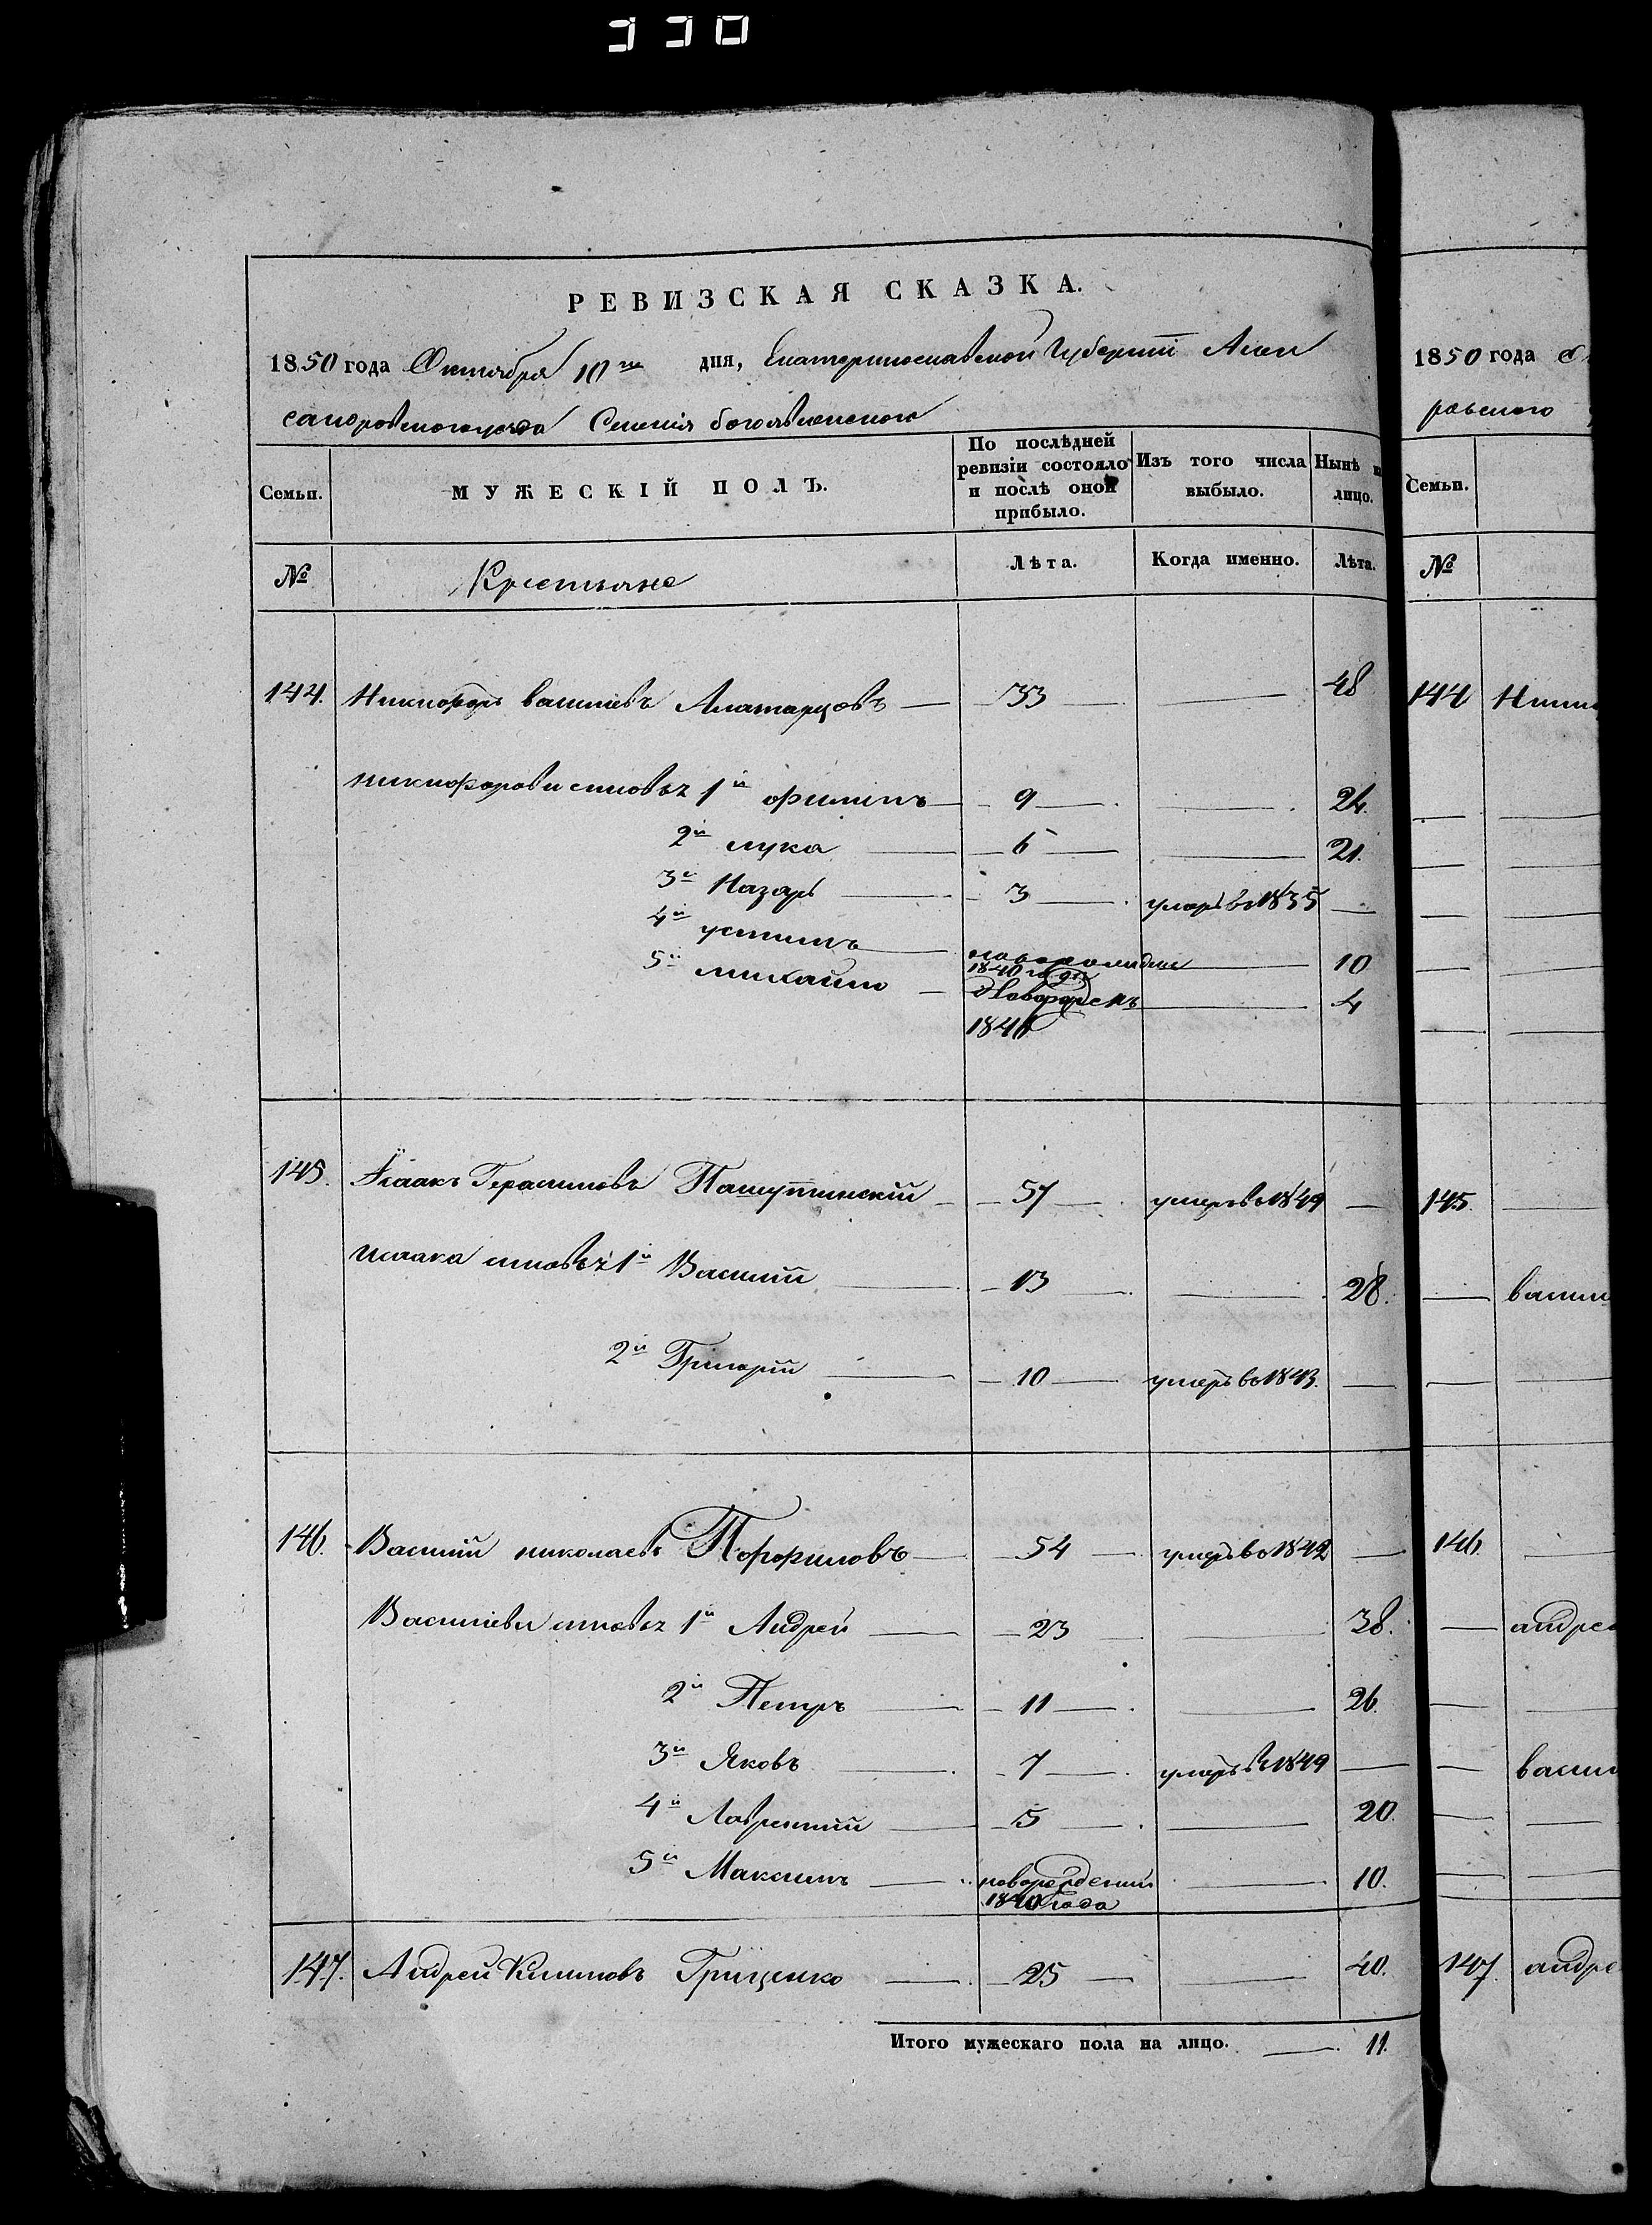 330
РЕВИЗСКАЯ СКАЗКА.
1850 года Октября 10го дня, Екатеринославской Губерніи Алек
сандровскогоуезда Селенія боголвленского
Семьи.
МУЖЕСКІЙ ПОЛЪ.
По послѣдней ревизіи состояло и послѣ оной прибыло.
Изъ того числа выбыло.
Нынѣ на лицо.
№
Крестьяне
Лѣта.
Когда именно.
Лѣта.
144. Никифоръ васильевъ 33 48
никифорови сыновья 1й филипъ 9 24.
2й лука 6 21.
3й Назаръ 3 умеръ въ 1835
4й устинъ 1840 года 10
5й михайло новорожденъ 1846 4
145. Ісаакъ Герасимовъ Пашутинскій 57 умеръ въ 1849
исаака сыновья 1й Василій 13 28.
2й Григорій 10 умеръ въ 1843.
146. Василій николаевъ Порфиловъ 54 умеръ въ 1842
Васильеви сыновья 1й Андрей 23 38.
2й Петръ 11 26.
3й Яковъ 7 умеръ въ 1849
4й Лаврентій 5 20.
5й Максимъ новорожденный 1840 года 10.
147. Андрей Климовъ Грищенко 25 40.
Итого мужескаго пола на лицо. 11.
1850 года
Семьи.
№
144
145.
146.
147.